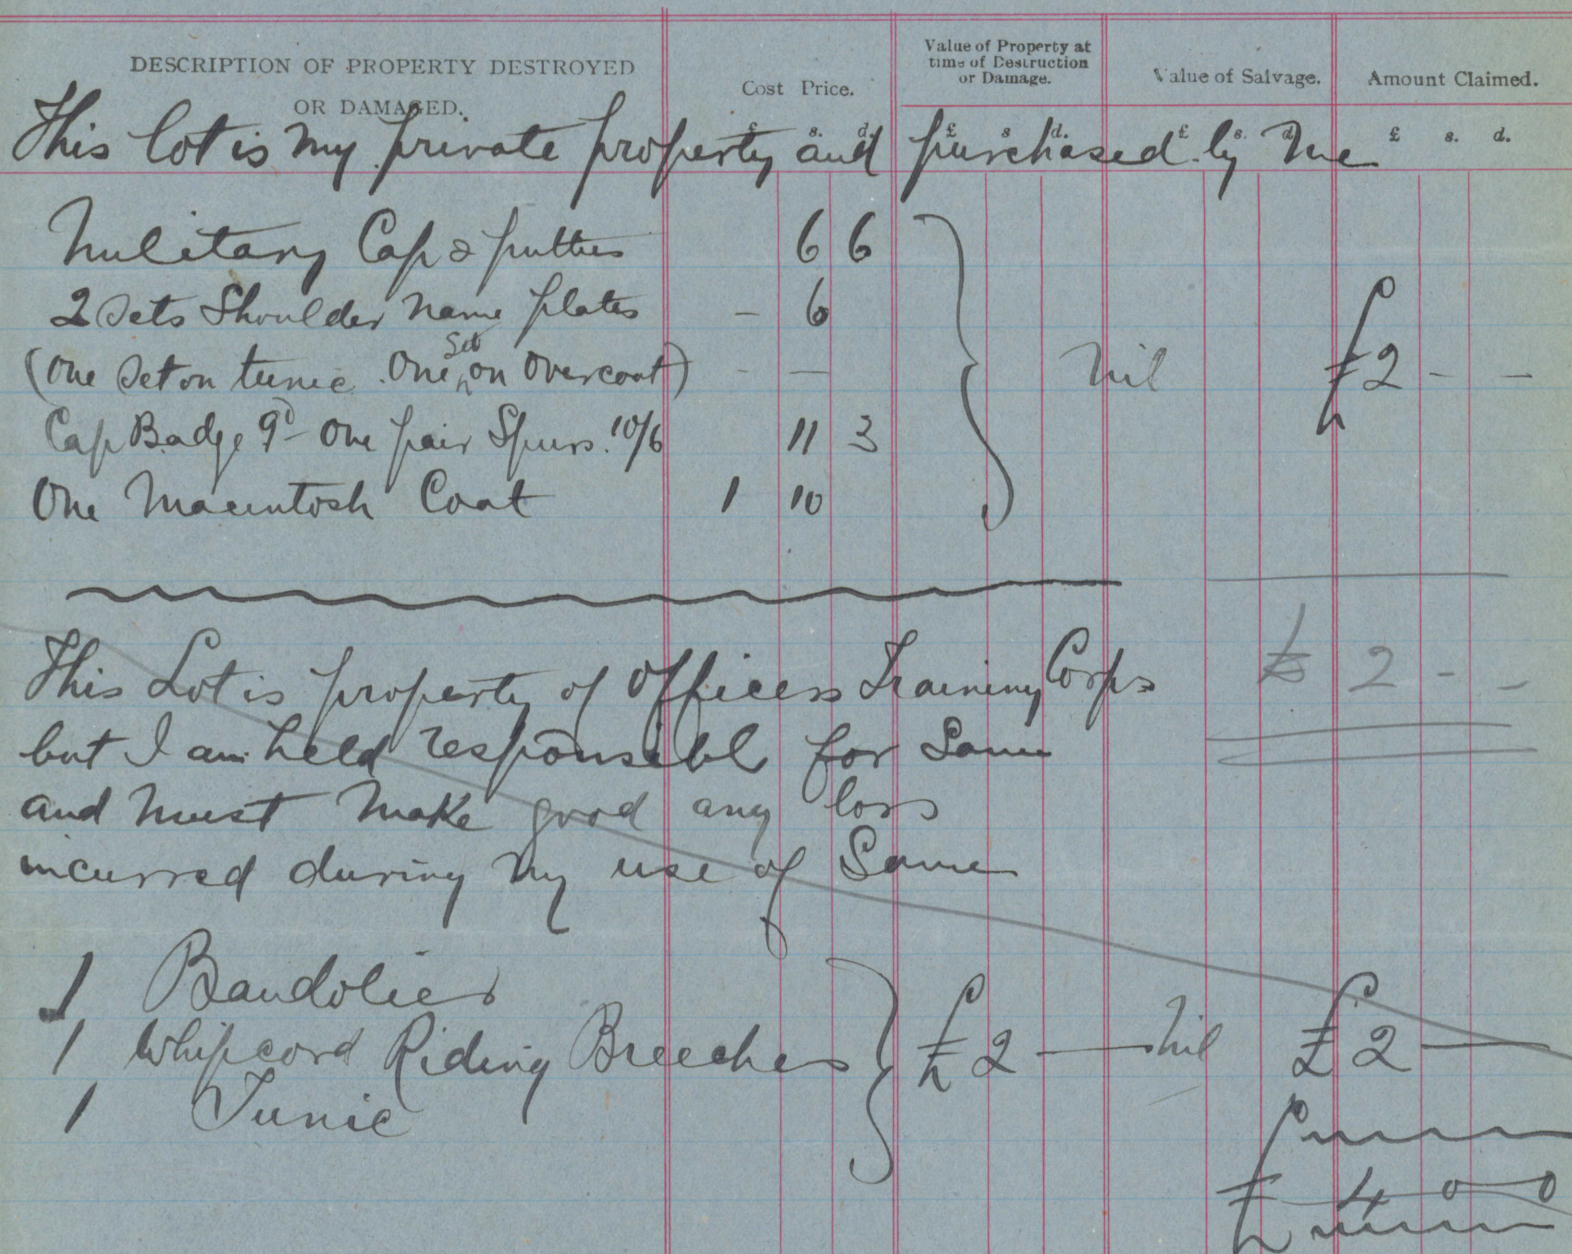 DESCRIPTION OF PROPERTY DESTROYED OR DAMAGED.
Cost Price.
Value of Property at time of Destruction or Damage.
Value of Salvage.
Amount Claimed.
£ s. d. £ s d. £ s. d. £ s. d.
This lot is my private property and purchased by me
Military Cap & putties 6 6
2 Sets Shoulder name plates - 6
(One Set on tunic. One Set on Overcoat) - - nil £2 - -
Cap Badge 9d - One pair Spurs. 10/6 11 3
One Macintosh Coat 1 10
£ 2 - -
This Lot is property of Officers Training Corps
but I am held responsible for Same
and must make good any loss
incurred during my use of Same
1 Bandolier
1 Whipcord Riding Breeches £2 - nil £2 -
1 Tunic
£4 0 0